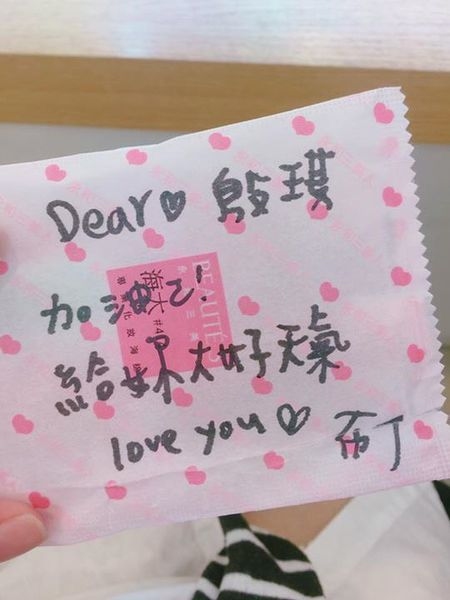 Dear♡ 殷琪
加油ㄛ!
給妳大好天氣
love you♡ 布丁
BEAUTE
海大
#4